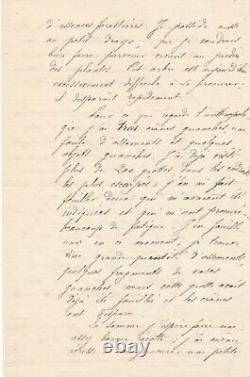 d'essences forestières. Je possède aussi
un petit drago que je voudrais
bien faire parvenir avant au jardin
des plantes. Cet arbre est aujourd'hui
excessivement difficile à se procurer;
il disparaît rapidement.
Pour ce qui regarde l'anthropologie
j'ai trois crânes guanches une
foule d'ossements et quelques
objets guanches. J'ai déjà visité
plus de 200 grottes dans les endroits
les plus escarpés; j'en ai fait
fouiller deux qui m'avaient été
indiquées et qui m'ont procuré
beaucoup de fatigue. J'en fouille
une en ce moment, j'y trouve
une grande quantité d'ossements
quelques fragments de vases
guanches, mais cette grotte avait
déjà été fouillée et les crânes
ont disparu.
En somme, j'espère faire une
assez bonne récolte; j'ai même
une petite
worthpoint.com